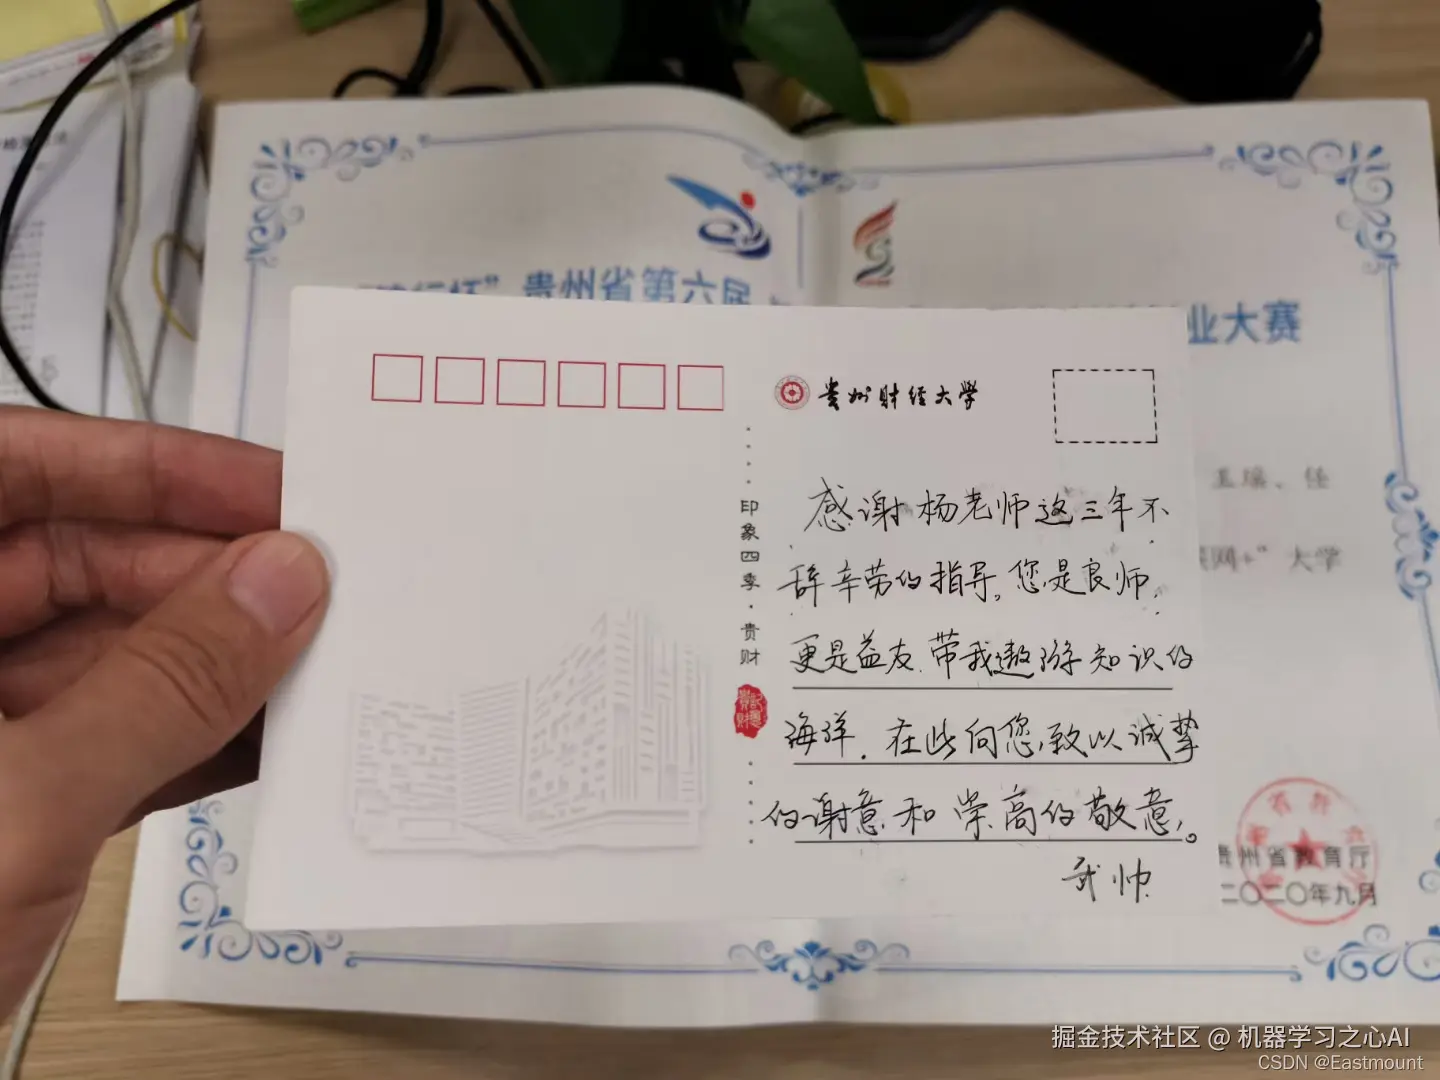 贵州省第六届
业大赛
贵州财经大学
印象四季·贵财
感谢杨老师这三年不
辞辛劳的指导。您是良师,
更是益友.带我遨游知识的
海洋.在此向您,致以诚挚
的谢意和崇高的敬意。
武帅.
大学
贵州省教育厅
二〇二〇年九月
掘金技术社区 @ 机器学习之心AI
CSDN @Eastmount